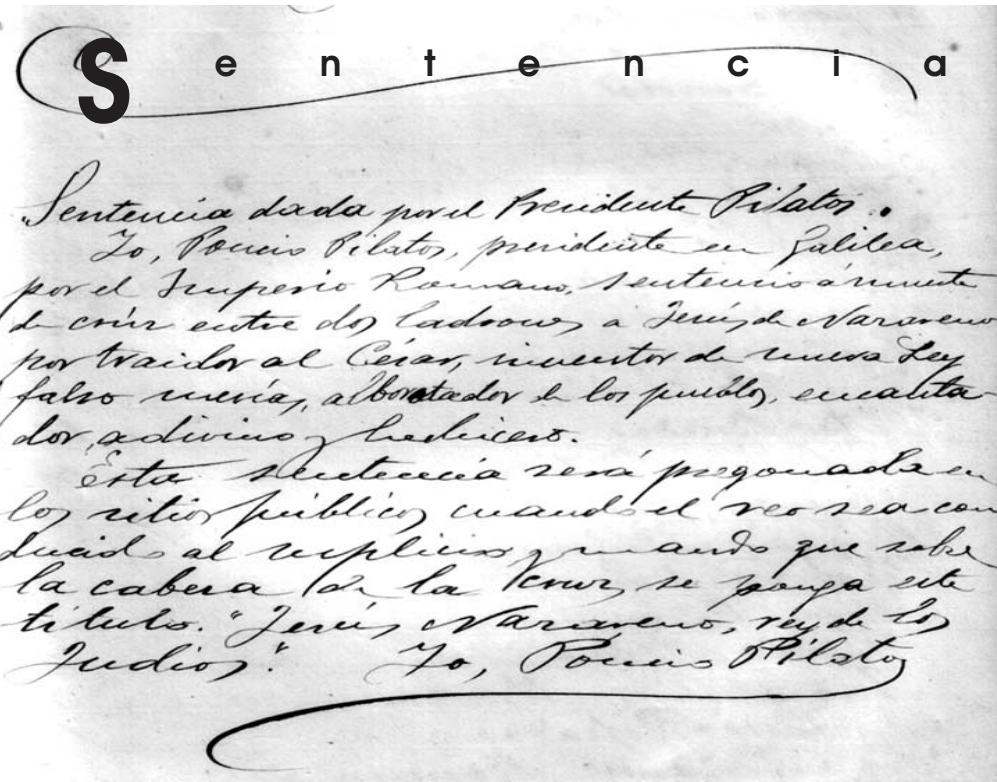 Sentencia
"Sentencia dada por el Presidente Pilatos".
Yo, Poncio Pilatos, presidente en Galilea,
por el Imperio Romano, sentencio á muerte
de crúz entre dos ladrones a Jesús de Nazareno
por traidor al César, inventor de nueva Ley
falso mesías, alborotador de los pueblos, encanta-
dor, adivino y hechicero.
Esta sentencia será pregonada en
los sitios públicos cuando el reo sea con
ducido al suplicio y mando que sobre
la cabeza de la cruz se ponga este
título. "Jesús Nazareno, rey de los
Judios". Yo, Poncio Pilatos